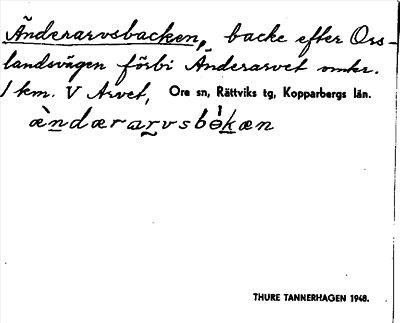 Änderarvsbacken, backe efter Ors-
landsvägen förbi Änderarvet omkr.
1 km. V Arvet, Ore sn, Rättviks tg, Kopparbergs län.
æ̀ndærarvsbɵ̀kæn
THURE TANNERHAGEN 1948.